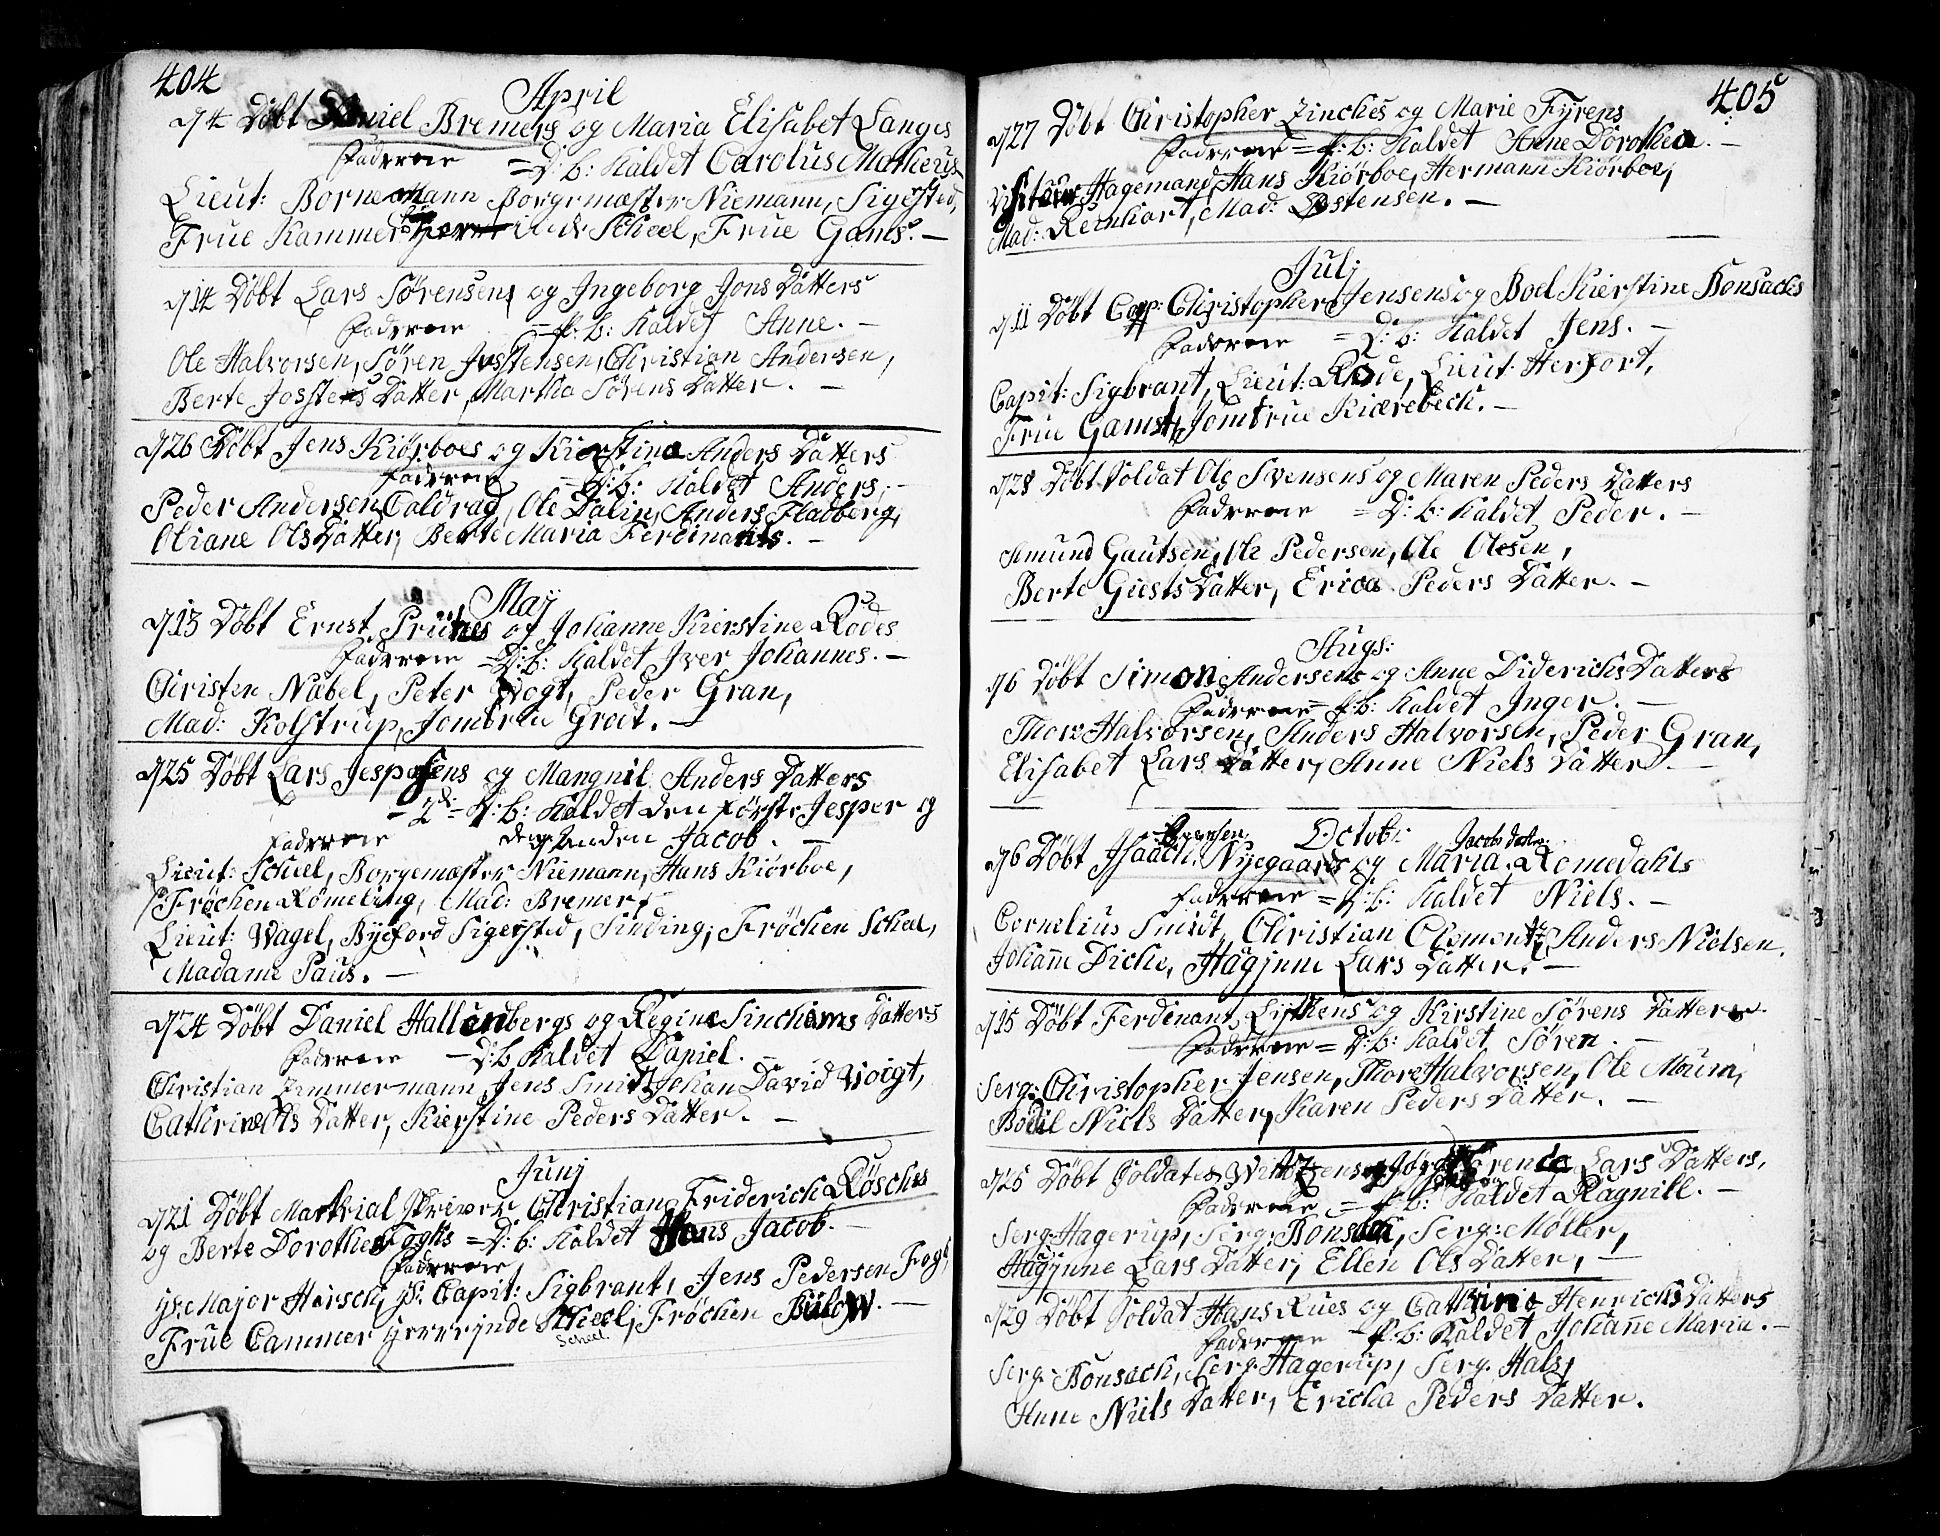 404
April
d/4 Døbt Daniel Bremers og Maria Elisabet Langes
Fadderne = D: b: Kaldet Carolus Matheus
Lieut: Bornemann Borgemæster Niemann, Sigersted,
Frue Kammer Scheel, Frue Gams. —
d/14 Døbt Lars Sørensens og Ingeborg Jons Datters
Fadderne = p: b: Kaldet Anne. —
Ole Halvorsen, Søren Jostensen, Christian Andersen,
Berte Jostens Datter, Martha Sørens Datter. —
d/26 Døbt Jens Kiørboes og Kierstine Anders Datters
Fadderne = D: b: Kaldet Anders. —
Peder Andersen Coldrag, Ole Dalin, Anders Fladberg,
Oliane Ols Datter, Berte Maria Ferdinants. —
Maij
d/13 Døbt Ernst og Johanne Kierstine Rodes
Fadderne = D: b: Kaldet Iver Johannes. —
Christen Nabel, Peter Vogt, Peder Gran,
Mad: Kolstrup, Jomfru Groet. —
d/25 Døbt Lars Jespersens og Mangnil Anders Datters
— 2de D: b: Kaldet den første Jesper og
Fadderne den Anden Jacob. —
Lieut: Scheel, Borgemæster Niemann, Hans Kiørboe,
Frøchen Rømeling, Mad: Bremer,
Lieut: Wagel, Byeford Sigersted, Sinding, Frøchen Scheel,
Madame Paus. —
d/24 Døbt Daniel Hallenbergs og Regine Sinchams Datters
Fadderne — D: b Kaldet Daniel. —
Christian Zimmermann, Jens Smidt, Johan David Voigt,
Cathrine Ols Datter, Kierstine Peders Datter. —
Junj
d/21 Døbt Matrial Skriver Christian Friderich Røsches
og Berte Dorothea Foghs = D: b: Kaldet Hans Jacob. —
Fadderne
Hr: Major Hirsch, Hr: Capit: Sigbrant, Jens Pedersen Fogt,
Frue Cammer Herrinde Scheel, Frøchen Bülow. —
Scheel
405
d/27 Døbt Christopher Zinches og Marie Fyrens
Fadderne = p: b: Kaldet Anne Dorothea. —
Visiteur Hagemand, Hans Kiørboe, Hermann Kiørboe,
Mad: Reinhart, Mad: Ostensen. —
Julj
d/11 Døbt Cap: Christopher Jensens og Boel Kierstine Bonsachs
Fadderne = D: b: Kaldet Jens. —
Capit: Sigbrant, Lieut: Rode, Lieut: Herfort,
Frue Gamst, Jomfrue Kierebech. —
d/28 Døbt Soldat Ole Svensens og Maren Peders Datters
Fadderne = D: b: Kaldet Peder. —
Amund Gautsen, Ole Pedersen, Ole Olesen,
Berte Giests Datter, Erica Peders Datter. —
Augs:
d/6 Døbt Simon Andersens og Anne Diderichs Datters
Fadderne = p: b: Kaldet Inger. —
Thore Halvorsen, Anders Halvorsen, Peder Gran,
Elisabet Lars Datter, Anne Niels Datter. —
Octob:
Jacobs datter
d/6 Døbt Isaach Nyegaards og Maria Romedahls
Fadderne = D: b: Kaldet Niels. —
Cornelius Smidt, Christian Clementz, Anders Nielsen,
Johanne Diche, Hagjnne Lars Datter. —
d/15 Døbt Ferdinant Lythens og Kirstine Sørens Datters
Fadderne = D: b: Kaldet Søren. —
Serg: Christopher Jensen, Thore Halvorsen, Ole Moum,
Bodil Niels Datter, Karen Peders Datter. —
d/25 Døbt Soldat Lars Datters,
Fadderne = p: b: Kaldet Ragnill. —
Serg: Hagerup, Serg: Bonsach, Serg: Møller,
Hagjnne Lars Datter, Ellen Ols Datter, —
d/29 Døbt Soldat Hans Rues og Cathrine Henrichs Datters
Fadderne — p: b: Kaldet Johanne Maria. —
Serg: Bonsach, Serg: Hagerup, Serg: Hals,
Anne Niels Datter, Ericha Peders Datter.